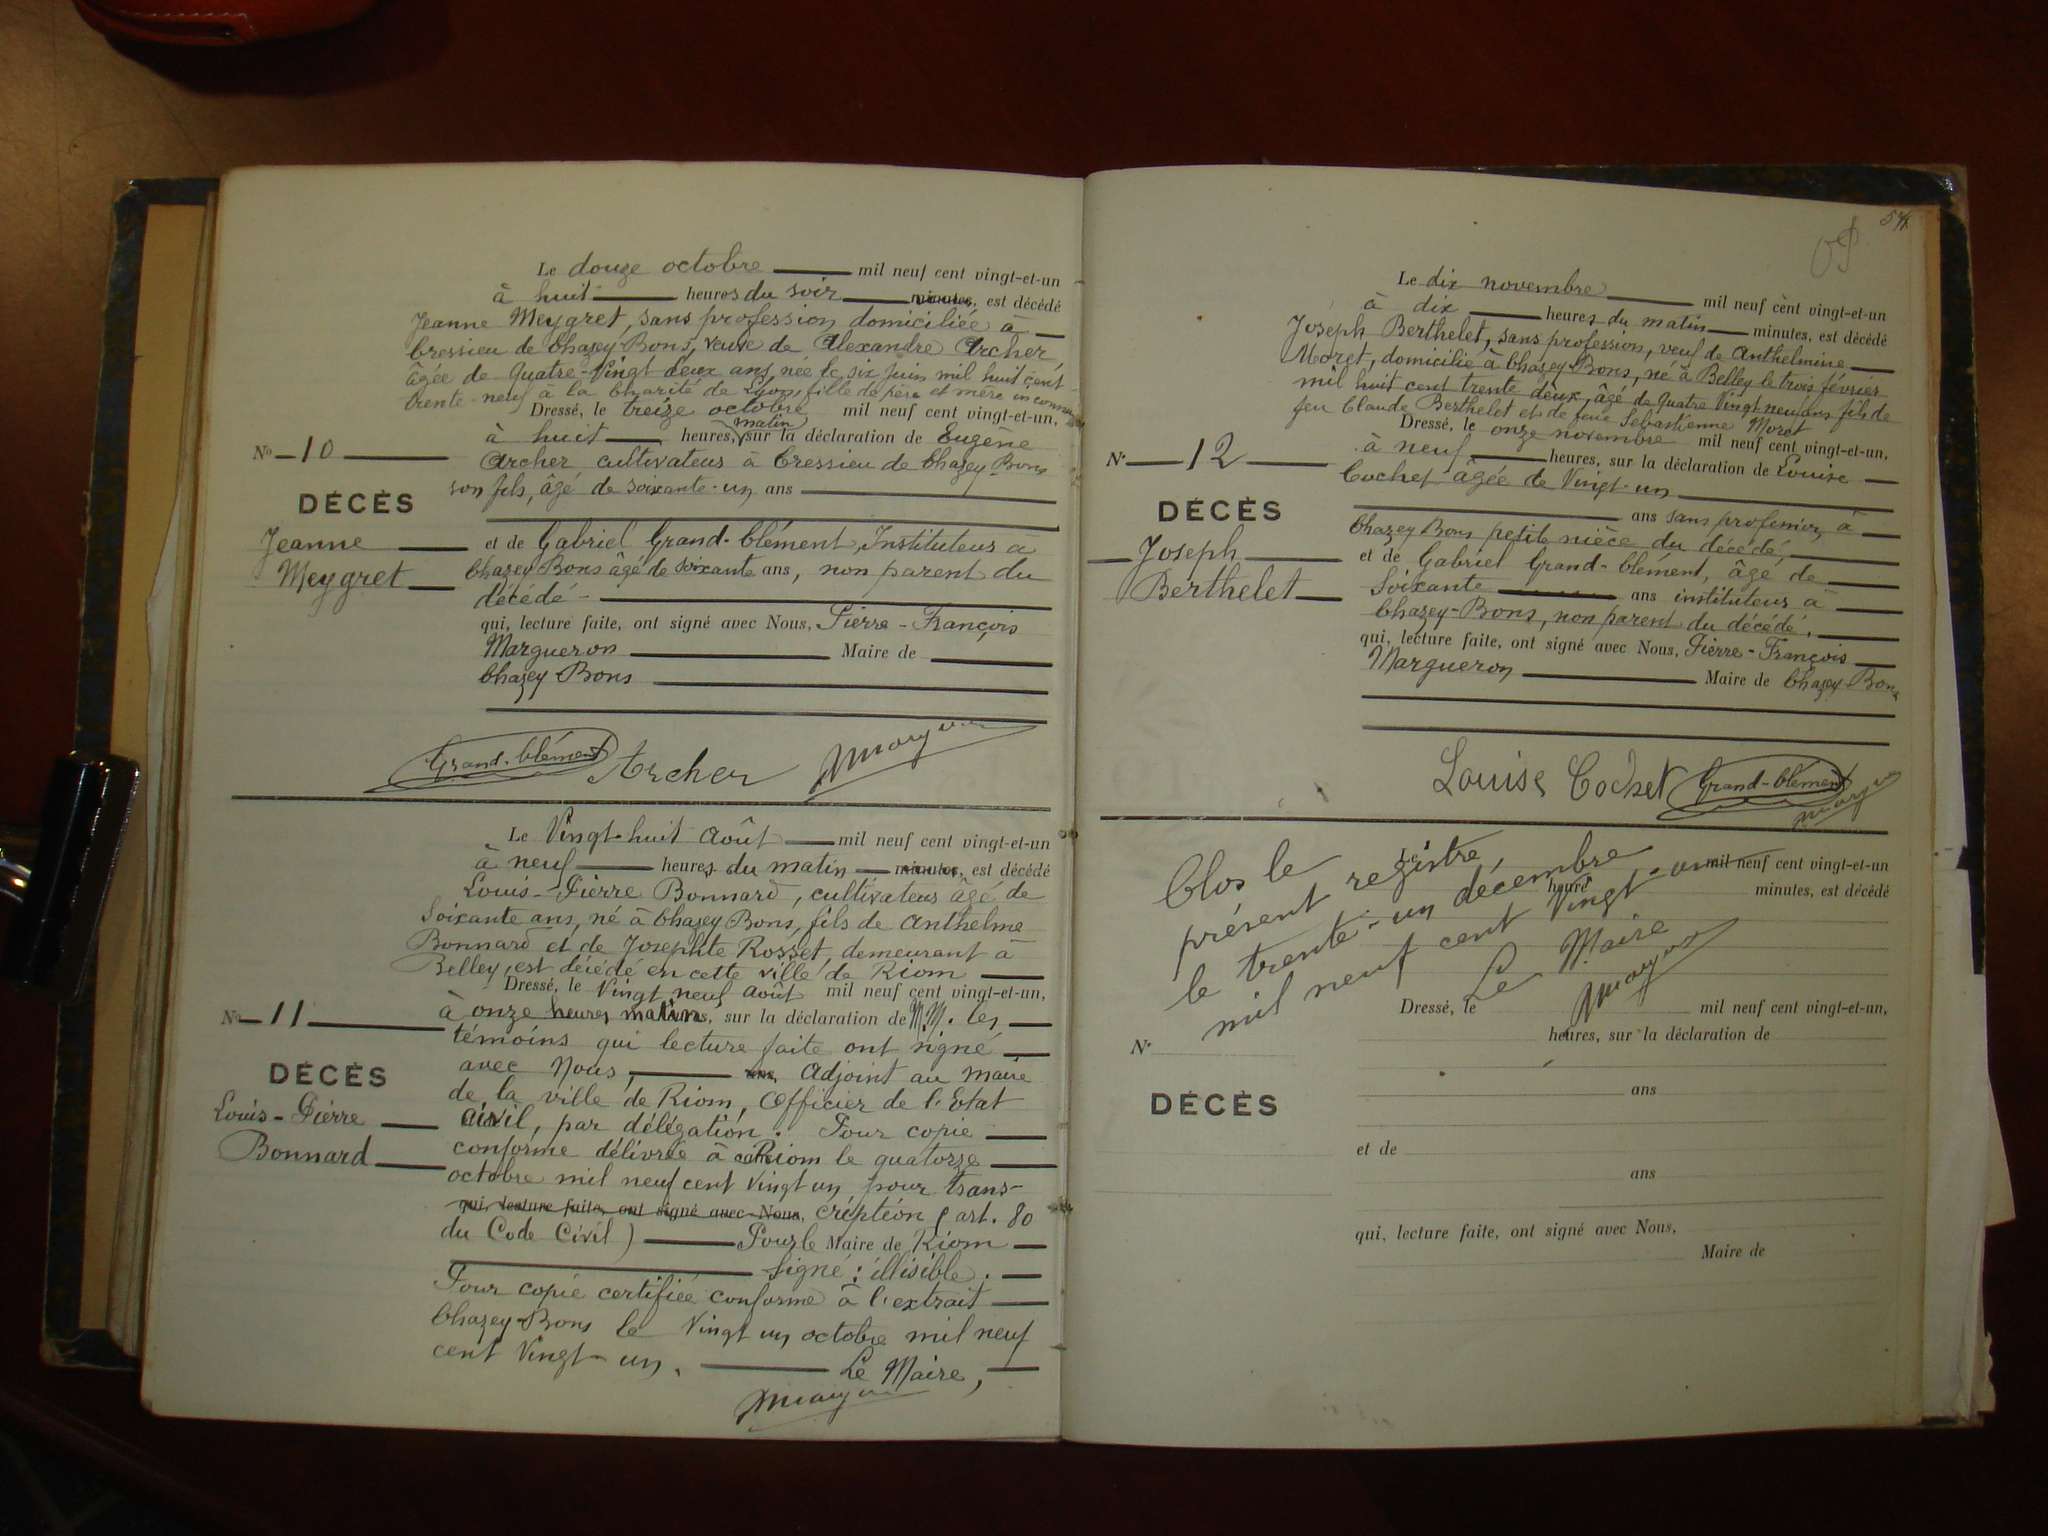 Le douze octobre mil neuf cent vingt-et-un
à huit heures du soir minutes, est décédé
Jeanne Meygret, sans profession domiciliée à
Cressieu de Chazey Bons, veuve de Alexandre Archer
âgée de Quatre-Vingt deux ans, née le six juin mil huit cent
trente-neuf à la Charité de Lyon, fille de père et mère inconnus
Dressé, le treize octobre mil neuf cent vingt-et-un,
à huit heures, matin sur la déclaration de Eugène
Archer cultivateur à Cressieu de Chazey Bons
son fils, âgé de soixante-un ans
No 10
DÉCÈS
Jeanne
Meygret
et de Gabriel Grand-Clément, Instituteur à
Chazey Bons âgé de soixante ans, non parent du
décédé
qui, lecture faite, ont signé avec Nous, Pierre-François
Margueron Maire de
Chazey Bons
Grand-Clément Archer
Le Vingt-huit Août mil neuf cent vingt-et-un
à neuf heures du matin minutes, est décédé
Louis-Pierre Bonnard, cultivateur âgé de
Soixante ans, né à Chazey Bons, fils de Anthelme
Bonnard et de Josephte Rosset, demeurant à
Belley, est décédé en cette ville de Riom
Dressé, le Vingt neuf Août mil neuf cent vingt-et-un,
à onze heures matin, sur la déclaration de M.M. les
témoins qui lecture faite ont signé
avec Nous, ans, Adjoint au maire
de la ville de Riom, Officier de l'Etat
Civil, par délégation. Pour copie
conforme délivrée à Riom le quatorze
octobre mil neuf cent Vingt un pour trans-
qui, lecture faite, ont signé avec Nous, cription (art. 80
du Code Civil) Pour le Maire de Riom
Signé: illisible.
Pour copie certifiée conforme à l'extrait
Chazey-Bons le Vingt un octobre mil neuf
cent Vingt-un.
Le Maire,
No 11
DÉCÈS
Louis-Pierre
Bonnard
57
Le dix novembre mil neuf cent vingt-et-un
à dix heures du matin minutes, est décédé
Joseph Berthelet, sans profession, veuf de Anthelmine
Moret, domicilié à Chazey Bons, né à Belley le trois février
mil huit cent trente deux, âgé de Quatre Vingt neuf ans fils de
feu Claude Berthelet et de feue Sebastienne Moret
Dressé, le onze novembre mil neuf cent vingt-et-un,
à neuf heures, sur la déclaration de Louise
Cochet âgée de Vingt-un
ans sans profession, à
Chazey Bons petite nièce du décédé,
No 12
DÉCÈS
Joseph
Berthelet
et de Gabriel Grand-Clément, âgé de
Soixante ans instituteur à
Chazey-Bons, non parent du décédé,
qui, lecture faite, ont signé avec Nous, Pierre-François
Margueron Maire de Chazey-Bons
Louise Cochet Grand-Clément
Le mil neuf cent vingt-et-un
heure minutes, est décédé
Clos le
présent registre,
le trente-un décembre
mil neuf cent Vingt-un
Le Maire
Dressé, le mil neuf cent vingt-et-un,
heures, sur la déclaration de
No
DÉCÈS
ans
et de
ans
qui, lecture faite, ont signé avec Nous,
Maire de